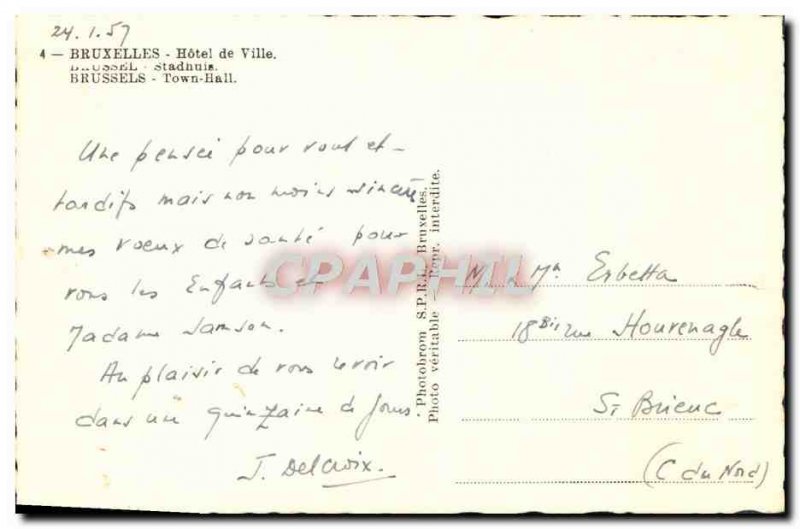 24.1.57
4 — BRUXELLES - Hôtel de Ville.
BRUSSEL - Stadhuis.
BRUSSELS - Town-Hall.
Une pensée pour vous et
tardifs mais non moins sincères
mes voeux de santé pour
vous les Enfants et
Madame Samson.
Au plaisir de vous revoir
dans une quinzaine de Jours.
J. Delcroix.
Photobrom S.P.R.L. Bruxelles.
Photo véritable — Repr. interdite.
CPAPHIL
M. Mᵐ Erbetta
18 Bis rue Houvenagle
St Brieuc
(C du Nord)